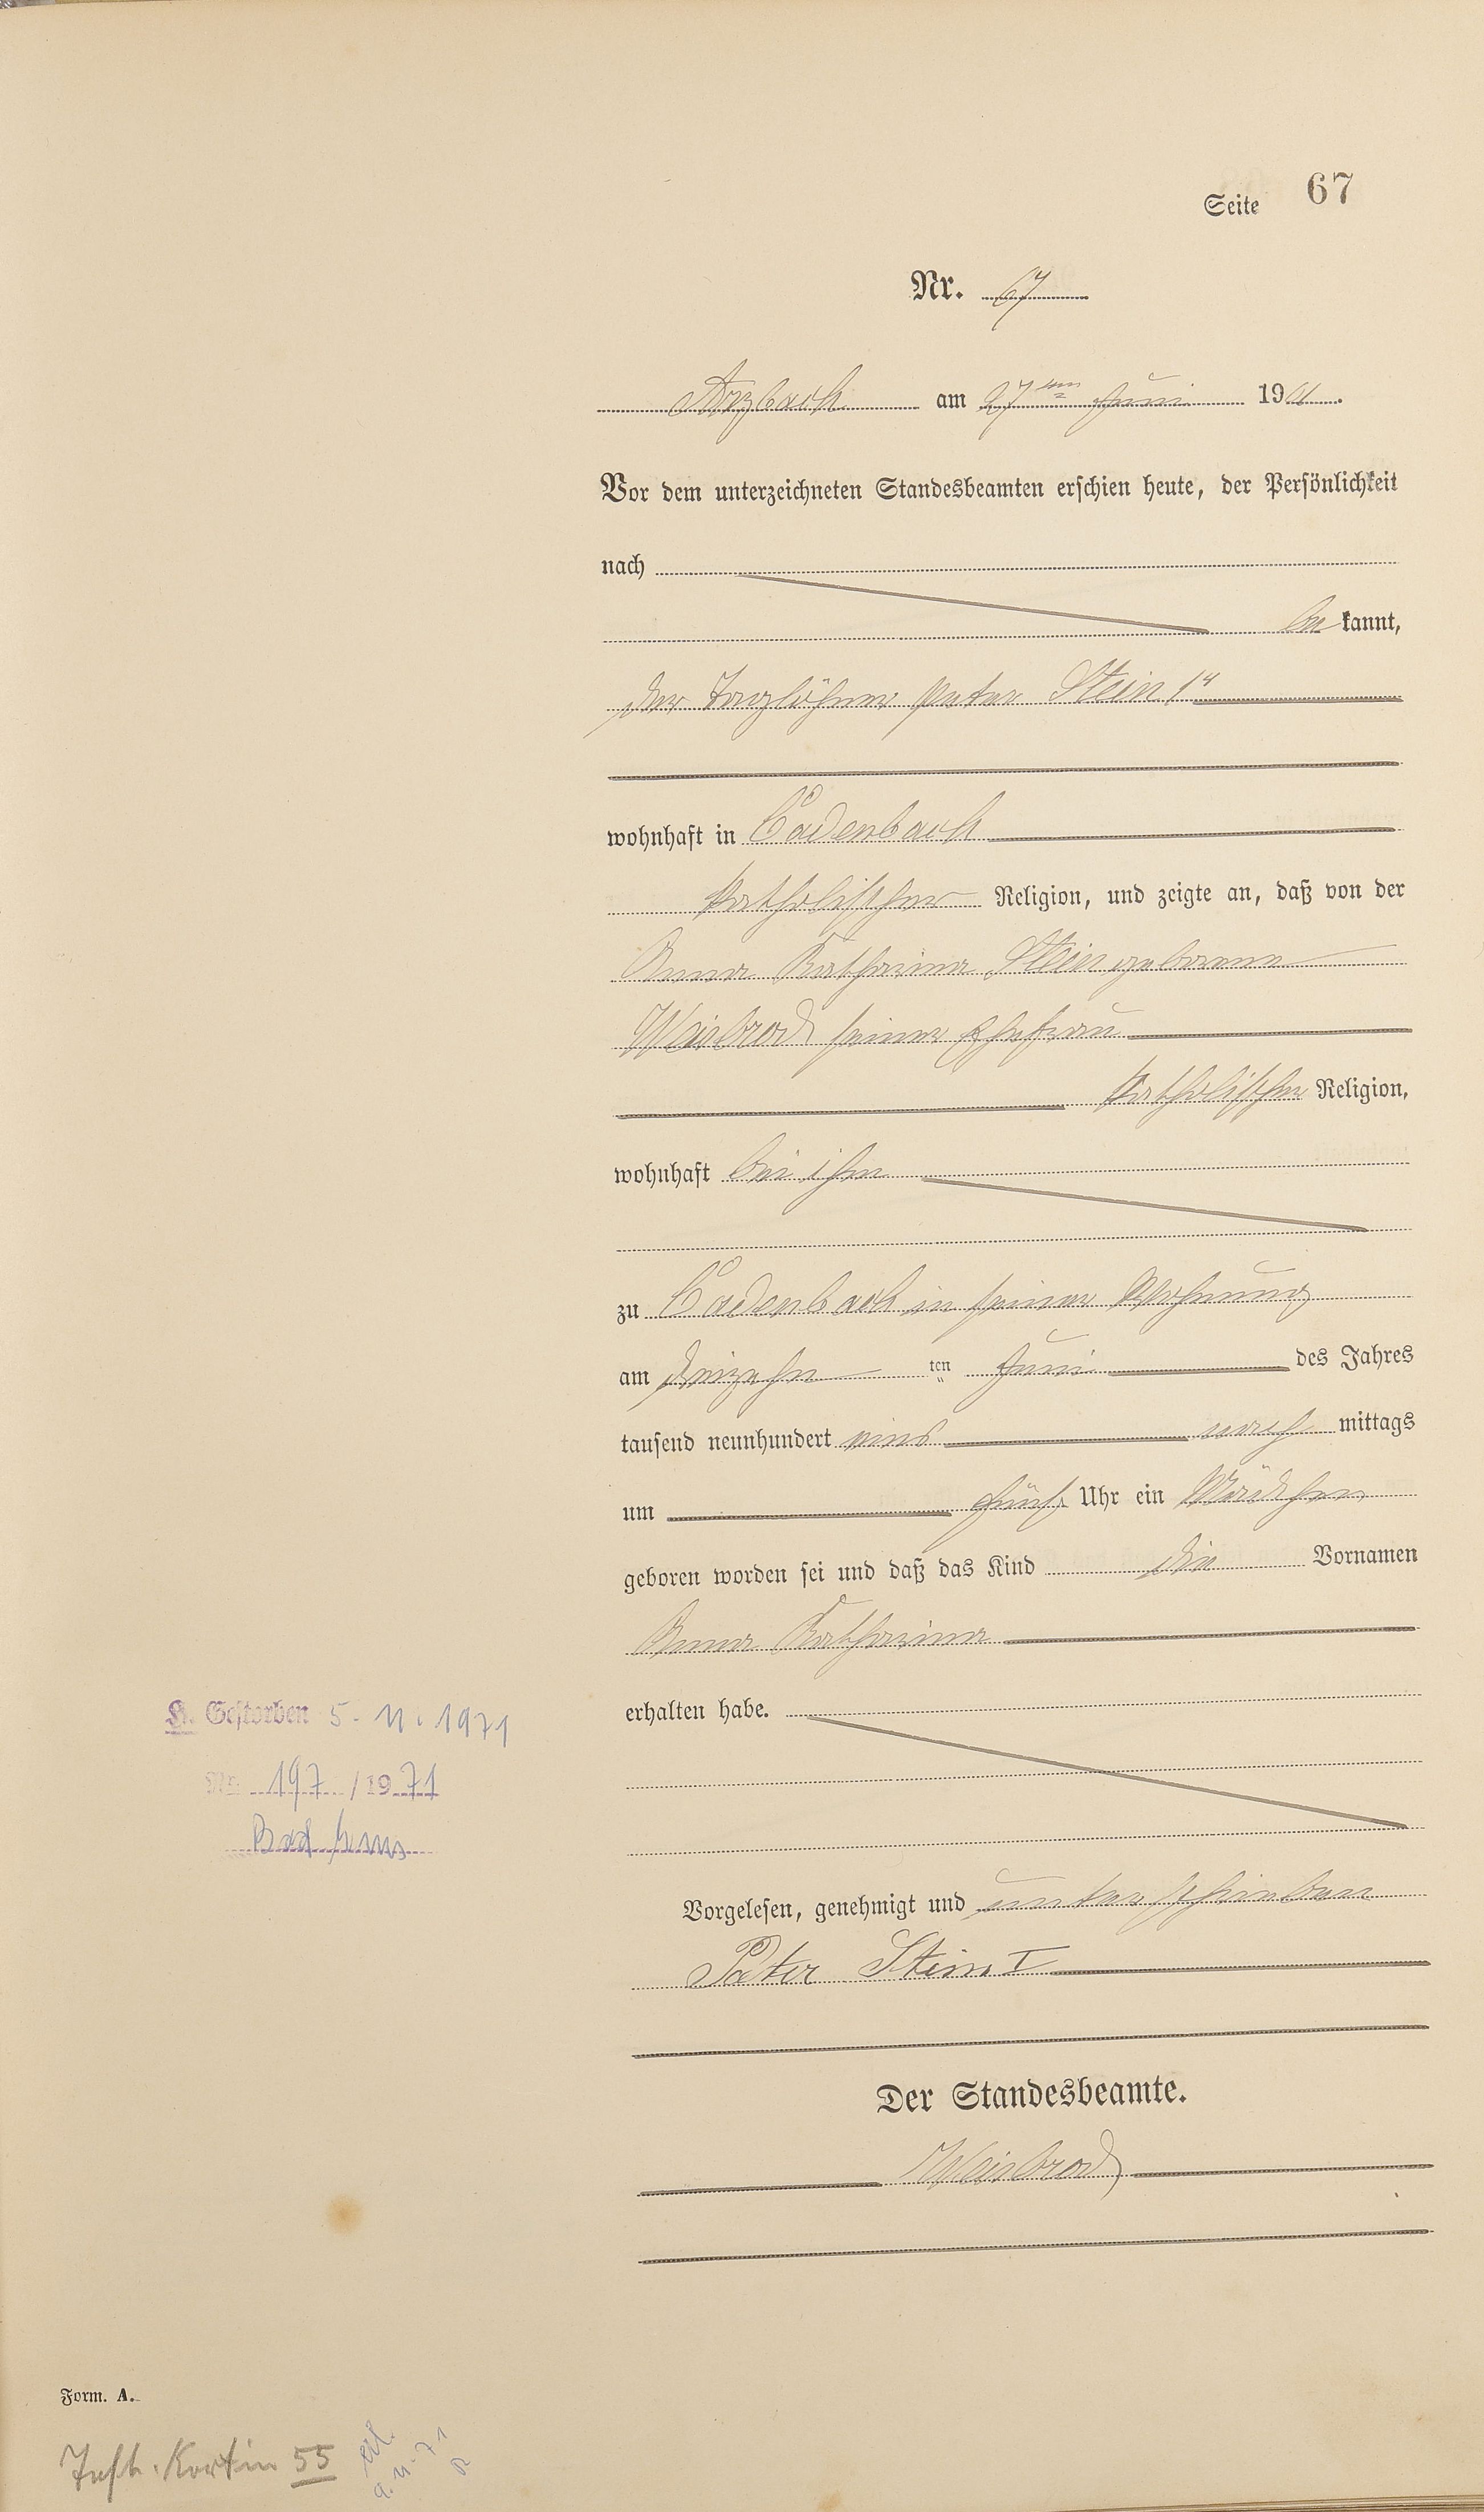 Seite 67
Nr. 67
Arzbach am 27ten Juni 1901.
Vor dem unterzeichneten Standesbeamten erschien heute, der Persönlichkeit
nach
be kannt,
der Taglöhner Peter Stein 1r
wohnhaft in Cadenbach
katholischer Religion, und zeigte an, daß von der
Anna Katharina Stein geborene
Weisbrod seiner Ehefrau
katholischer Religion,
wohnhaft bei ihm
zu Cadenbach in seiner Wohnung
am dreizehn ten Juni des Jahres
tausend neunhundert eins nach mittags
um fünf Uhr ein Mädchen
geboren worden sei und daß das Kind die Vornamen
Anna Katharina
erhalten habe.
K. Gestorben 5. 11. 1971
Nr. 197 / 1971
Bad Ems
Vorgelesen, genehmigt und unterschrieben
Peter Stein I
Der Standesbeamte.
Weisbrod
Form. A.
55